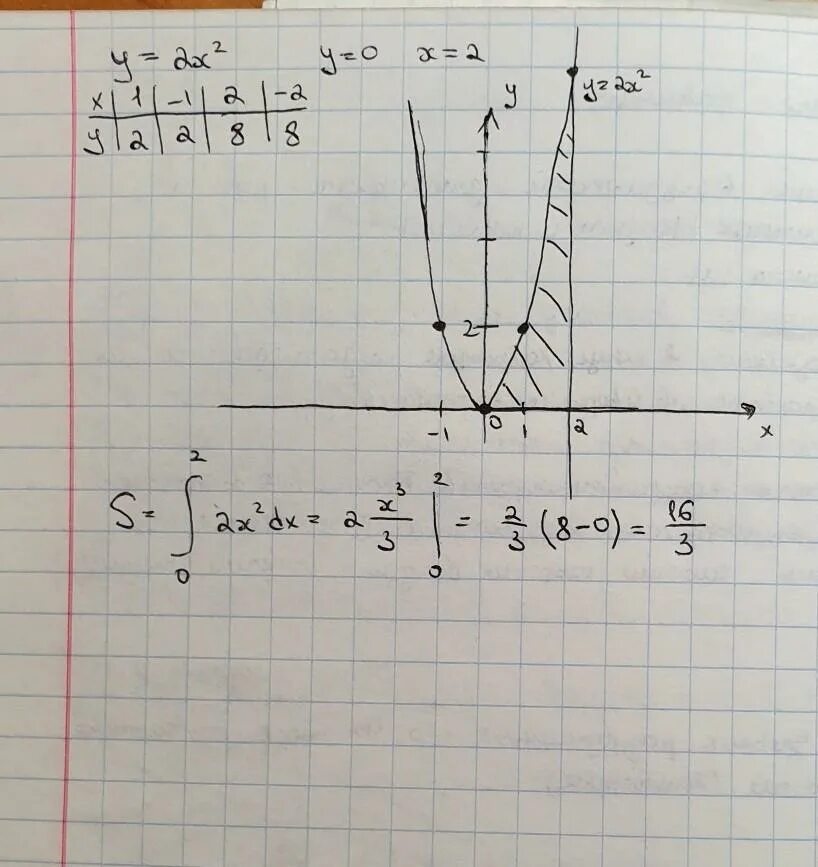 y = 2x² y=0 x=2
x | 1 | -1 | 2 | -2
y | 2 | 2 | 8 | 8
y
y=2x²
2
-1 0 1 2 x
S = ∫₀² 2x² dx = 2 x³/3 |₀² = 2/3 (8-0) = 16/3